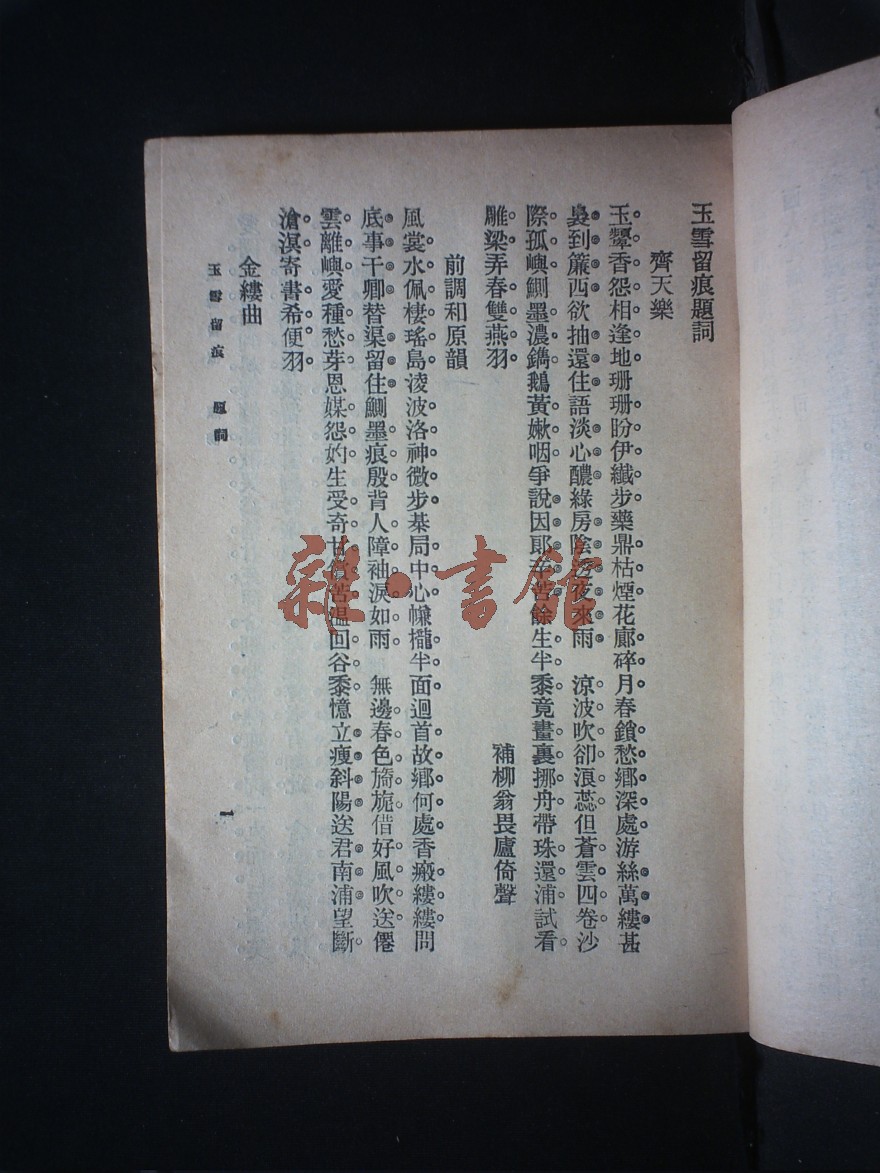 玉雪留痕題詞
齊天樂
玉顰香怨相逢地珊珊盼伊纖步藥鼎枯煙花廊碎月春鎖愁鄉深處游絲萬縷甚
裊到簾西欲抽還住語淡心醲綠房陰 夜來雨 涼波吹卻浪蕊但蒼雲四卷沙
際孤嶼鰂墨濃鐫鵝黃嫰咽爭說因郎辛苦餘生半黍竟畫裏挪舟帶珠還浦試看
雕梁弄春雙燕羽
補柳翁畏廬倚聲
前調和原韻
風裳水佩棲瑤島淩波洛神微步棊局中心幰攏半面迴首故鄉何處香瘢縷縷問
底事干卿替渠留住鰂墨痕殷背人障袖淚如雨 無邊春色旖旎借好風吹送僊
雲離嶼愛種愁芽恩媒怨妁生受奇甘 苦溫回谷黍憶立瘦斜陽送君南浦望斷
滄溟寄書希便羽
金縷曲
玉雪留痕 題詞
一
雜·書館